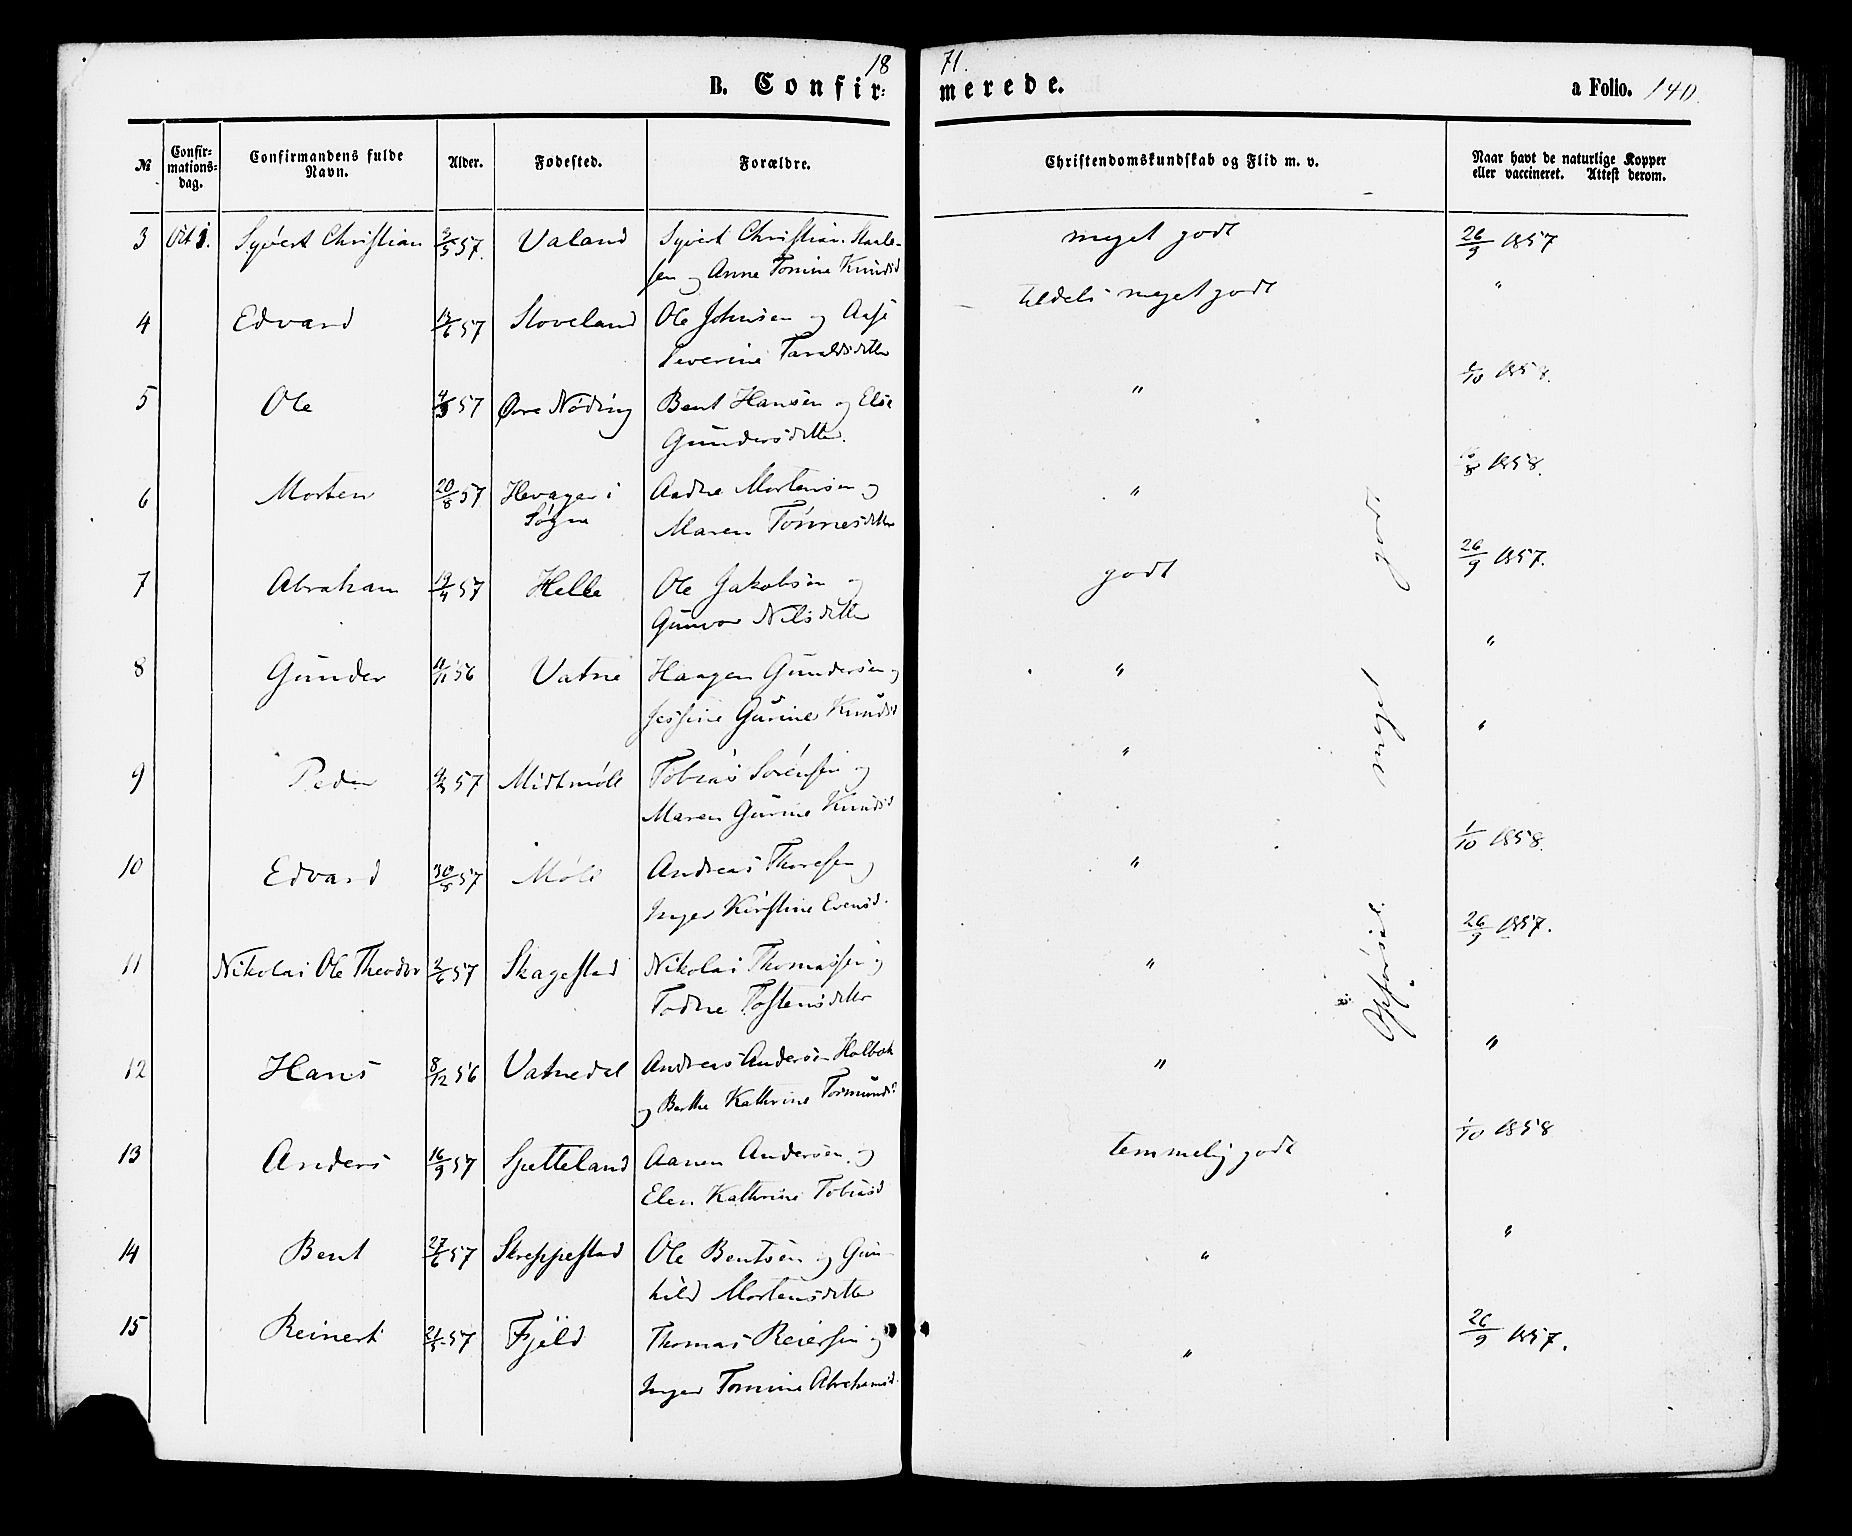 1871.
B. Confir: merede. a Folio. 140.
№ Confir: mations: dag. Confirmandens fulde Navn. Alder. Fødested. Forældre. Christendomskundskab og Flid m. v. Naar havt de naturlige Kopper eller vaccineret. Attest derom.
3 Oct 1. Syvert Christian 57. Valand Syvert Christian meget godt 26/9 1857
sen og Anne Tomine Knudsd
4 Edvard 57 Stoveland Ole Johnsen og Aase tildels meget godt "
Severine Taraldsdatter
5 Ole 57 Øvre Nøding Bent Hansen og Else " 1858.
Gundersdatter.
6 Morten 20/8 57 Hevager i Søgne Aadne Mortensen og " 1858.
Maren Tønnesdatter
7 Abraham 19/4 57 Helle Ole Jakobsen og godt 26/9 1857.
Gunvor Nilsdatter
8 Gunder 56 Vatne Haagen Gundersen og " "
Jessine Gurine Knudsd
9 Peder 57 Midtmøll Tobias Sørensen og " "
Maren Gurine Knudsd
10 Edvard 30/8 57 Møll Andreas Thoresen og " 1/10 1858.
Inger Kirstine Evensd.
11 Nikolai Ole Theodor 2/6 57 Skagestad Nikolai Thomassen og " 26/9 1857.
Todne Tostensdatter
12 Hans 8/12 56 Vatnedal Andreas Andersen Holbæk " "
og Berthe Kathrine Tormundsd
13 Anders 16/9 57 Spetteland Aanen Andersen og temmelig godt 1/10 1858
Elen Kathrine Tobiasd
14 Bent 27/6 57 Skreppestad Ole Bentsen og Gun- " "
hild Mortensdatter
15 Reinert 57 Fjeld Thomas Reiersen og " 26/9 1857.
Inger Tomine Abrahamsd.
Opførsel. meget godt